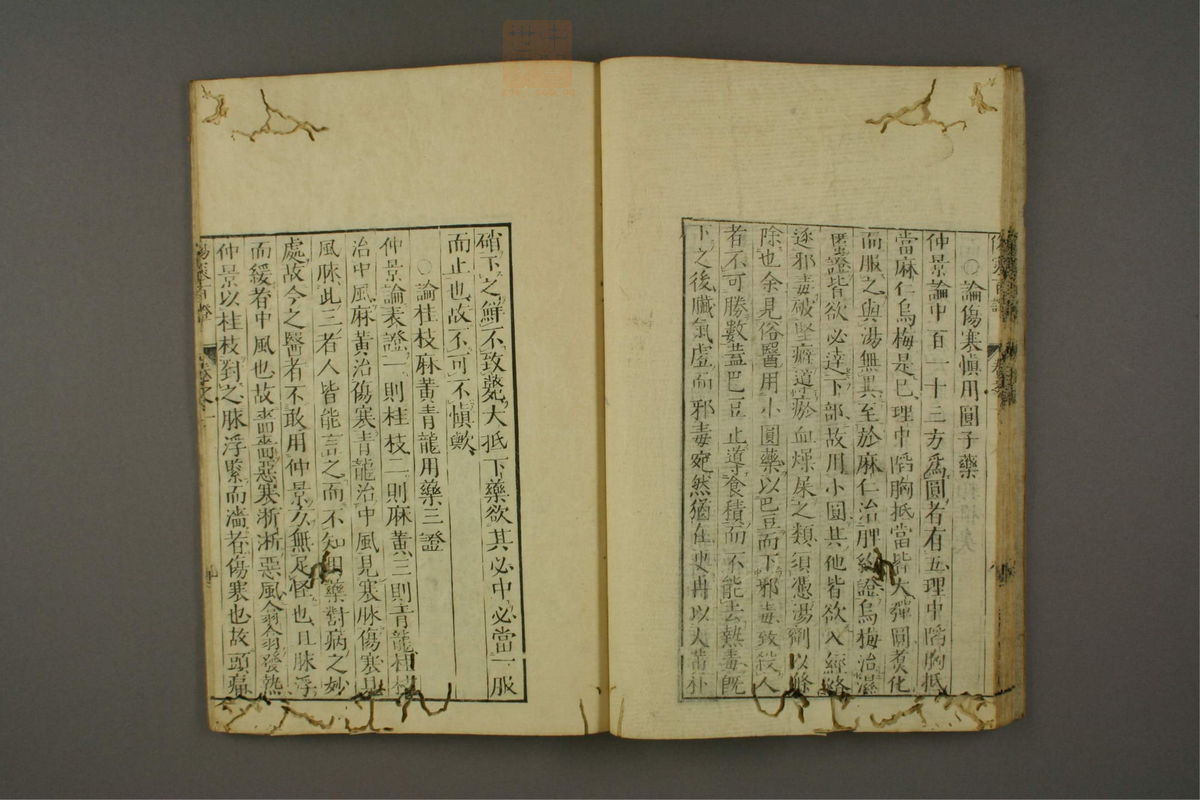 ○論傷寒慎用圓子藥
仲景論中百一十三方為圓者有五理中陷胸抵
當麻仁烏梅是已理中陷胸抵當皆大彈圓煮化
而服之與湯無異至於麻仁治脾約證烏梅治濕
䘌證皆欲必達下部故用小圓其他皆欲入經絡
逐邪毒破堅癖導瘀血燥屎之類須憑湯劑以滌
除也余見俗醫用小圓藥以巴豆而下邪毒致殺人
者不可勝數蓋巴豆止導食積而不能去熱毒既
下之後臟氣虛而邪毒宛然猶在更再以大黃朴
硝下之鮮不致斃大抵下藥欲其必中必當一服
而止也故不可不慎歟
○論桂枝麻黃青龍用藥三證
仲景論表證一則桂枝二則麻黃三則青龍桂枝
治中風麻黃治傷寒青龍治中風見寒脉傷寒見
風脉此三者人皆能言之而不知用藥對病之妙
處故今之醫者不敢用仲景方無足怪也且脉浮
而緩者中風也故嗇嗇惡寒淅淅惡風翕翕發熱
仲景以桂枝對之脉浮緊而濇者傷寒也故頭痛
傷寒百證 卷之